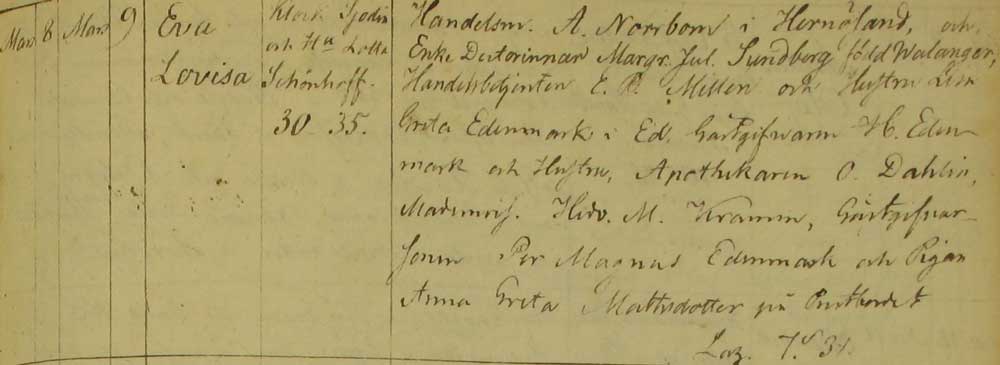 Mars 8 Mars 9 Eva Lovisa
Klock Sjödin och Hu Lotta Schönhoff.
30 35.
Handelsm. A. Norrbom i Hernöland, och
Enke Doctorinnan Margr. Jul. Sundberg född Walanger,
Handelsbetjenten E. P. Millén och Hustru Lisa
Greta Edenmark i Ed. Gästgifvaren H. Eden-
mark och Hustru, Apothekaren O. Dahlin,
Mademois. Hedv. M. Kramm, Gästgifvar-
sonen Per Magnus Edenmark och Pigan
Anna Greta Mathsdotter på Prestbordet
7. 31.